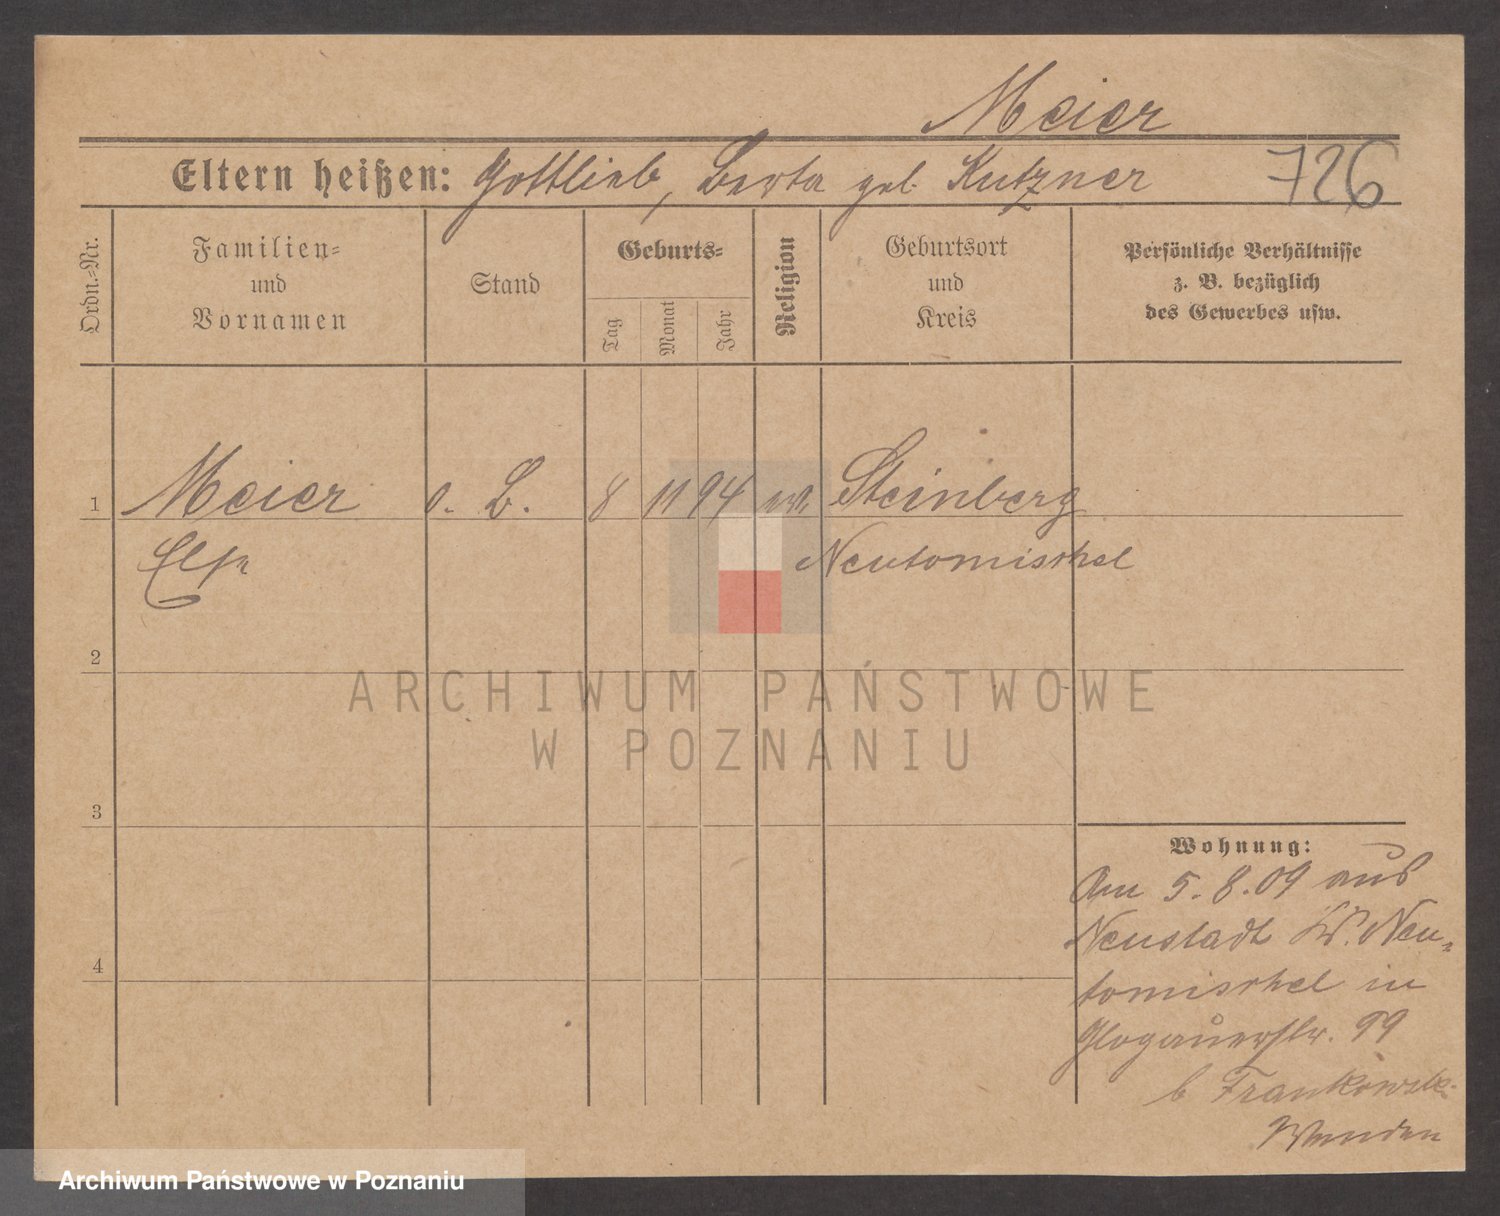 Meier
Eltern heißen: Gottlieb, Berta geb. Kutzner
726
Ordn.-Nr.
Familien-
und
Vornamen
Stand
Geburts-
Tag
Monat
Jahr
Religion
Geburtsort
und
Kreis
Persönliche Verhältnisse
z. B. bezüglich
des Gewerbes usw.
1 Meier o. B. 8 11 94 ev. Steinberg
Neutomischel
2
3
4
ARCHIWUM PAŃSTWOWE
W POZNANIU
Wohnung:
Am 5.8.09 aus
Neustadt Kr. Neu-
tomischel in
Glogauerstr. 99
b Frankowski
Wenden
Archiwum Państwowe w Poznaniu